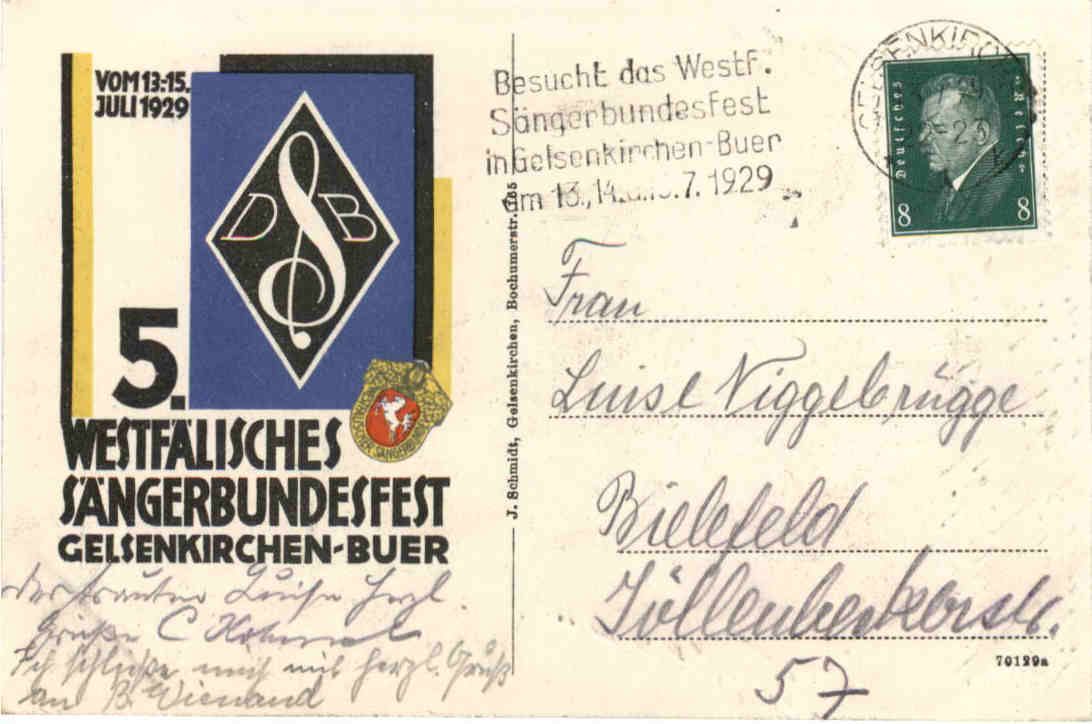 VOM 13.-15.
JULI 1929
D S B
5.
WESTFÄLISCHES
SÄNGERBUNDESFEST
GELSENKIRCHEN-BUER
Luise herzl.
Grüße C
Ich schließe mich mit herzl. Gruß
an B. Wienand
J. Schmidt, Gelsenkirchen, Bochumerstr. 165
Besucht das Westf.
Sängerbundesfest
in Gelsenkirchen-Buer
am 13., 14. u. 15. 7. 1929
GELSENKIRCHEN
Deutsches Reich
8 8
Frau
Luise Niggebrügge
Bielefeld
Jöllenbeckerstr.
57
70129a